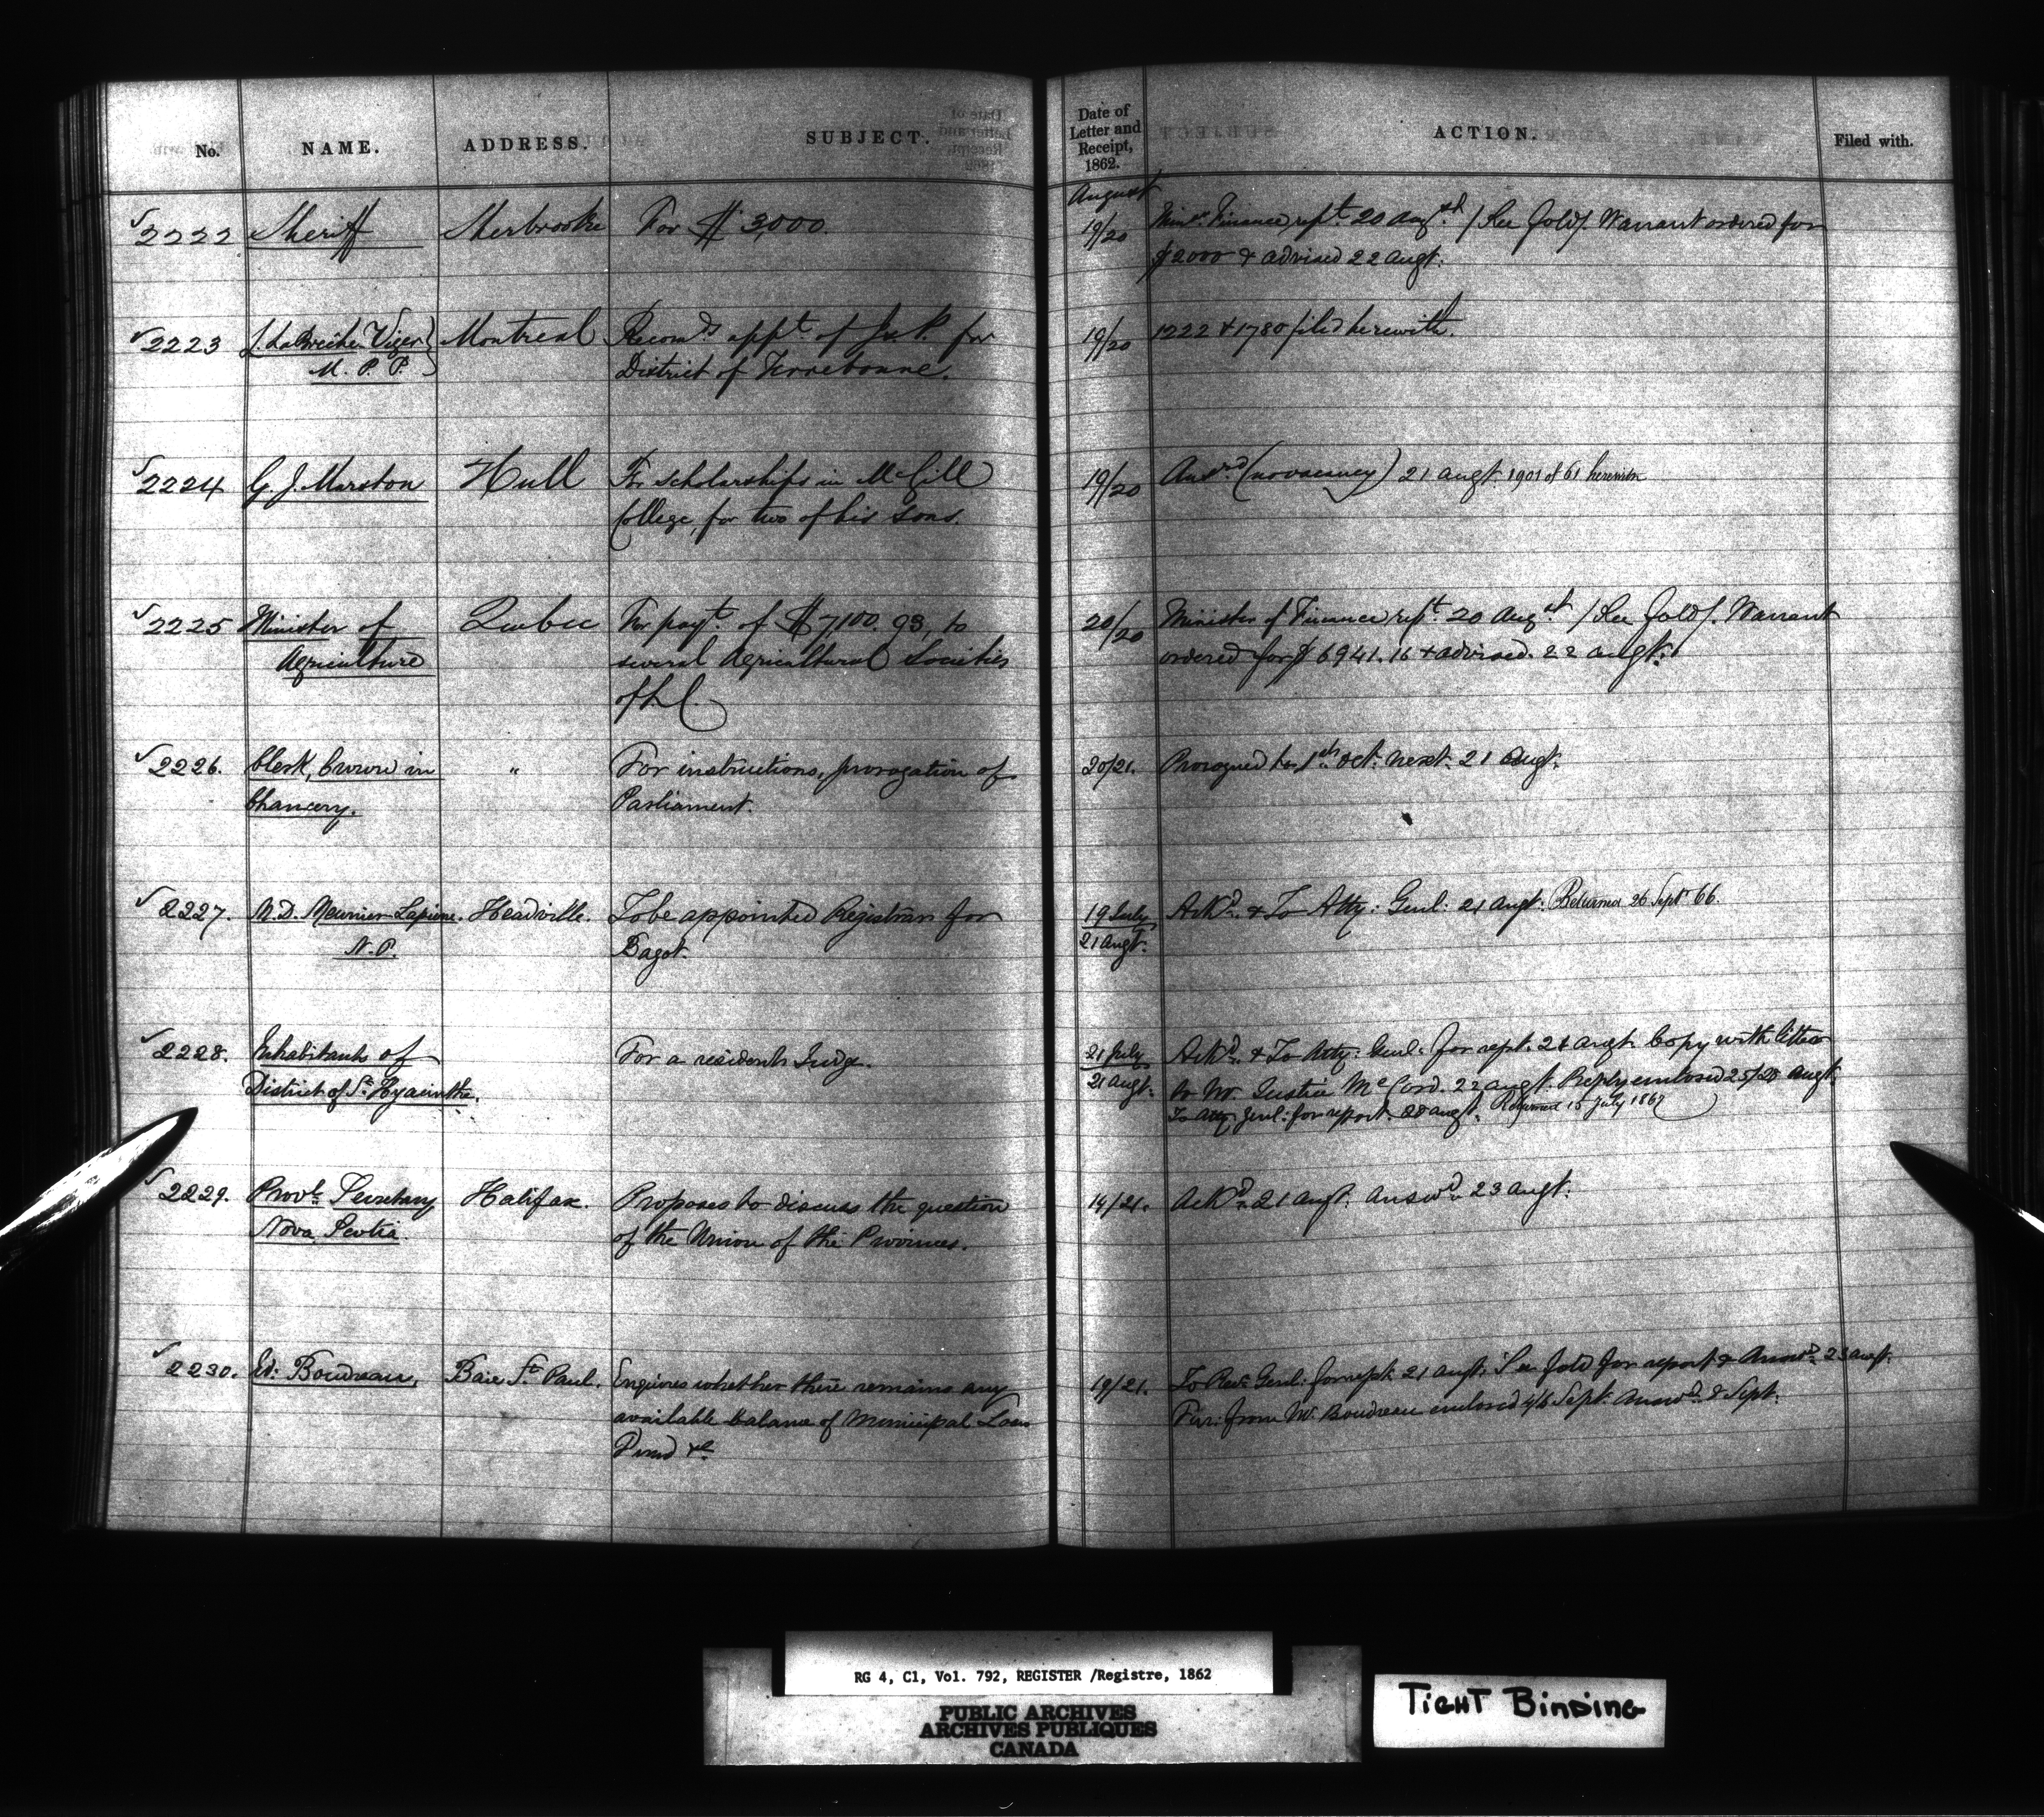 No. NAME. ADDRESS. SUBJECT. Date of Letter and Receipt, 1862. ACTION. Filed with.
August
2222 Sheriff Sherbrooke For $3,000. 19/20 Minr. Finance rept. 20 Augst. / See fold /. Warrant ordered for
$2000 & advised 22 Augt.
2223 L. LaBrèche Viger Montreal Recomds appt. of J.P. for 19/20 1222 & 1780 filed herewith.
M. P. P. District of Terrebonne.
2224 G. J. Marston Hull For scholarships in McGill 19/20 Ansrd. (no vacancy) 21 augt. 1901 of 61 herewith
College, for two of his sons.
2225 Minister of Quebec For payt. of $7,100.93, to 20/20 Minister of Finance rept. 20 Augst. / See fold /. Warrant
Agriculture several Agricultural Societies ordered for $6941.16 & advised. 22 augt.
of L C.
2226. Clerk, Crown in " For instructions, prorogation of 20/21. Prorogued to 1st. Oct. next. 21 Augt.
Chancery. Parliament.
2227. N. D. Meunier Lapierre. Headville. To be appointed Registrar for 19 July Ackd. & To Atty: Genl: 21 Augt. Returned 26 Sept 66.
N. P. Bagot. 21 Augt.
2228. Inhabitants of For a resident Judge. 21 July Ackd. & To Atty: Genl: for rept. 21 augt. Copy with letter
District of St. Hyacinthe. 21 augt. to Mr. Justice McCord. 22 augt. Reply enclosed 25/28 Augt.
To Atty. Genl: for report. 28 augt. Returned 15 July 1867
2229. Provl. Secretary Halifax. Proposes to discuss the question 14/21. Ackd. 21 augt. Answd. 23 augt.
Nova Scotia of the Union of the Provinces.
2230. Ed: Boudreau, Baie St. Paul. Enquires whether there remains any 19/21. To Recr. Genl: for rept. 21 augt. See fold for report & Answd. 23 augt.
available balance of Municipal Loan Fur: from Mr. Boudreau enclosed 4/6 Sept. Answd. 8 Sept.
Fund &c.
RG 4, C1, Vol. 792, REGISTER /Registre, 1862
PUBLIC ARCHIVES
ARCHIVES PUBLIQUES
CANADA
TIGHT BINDING